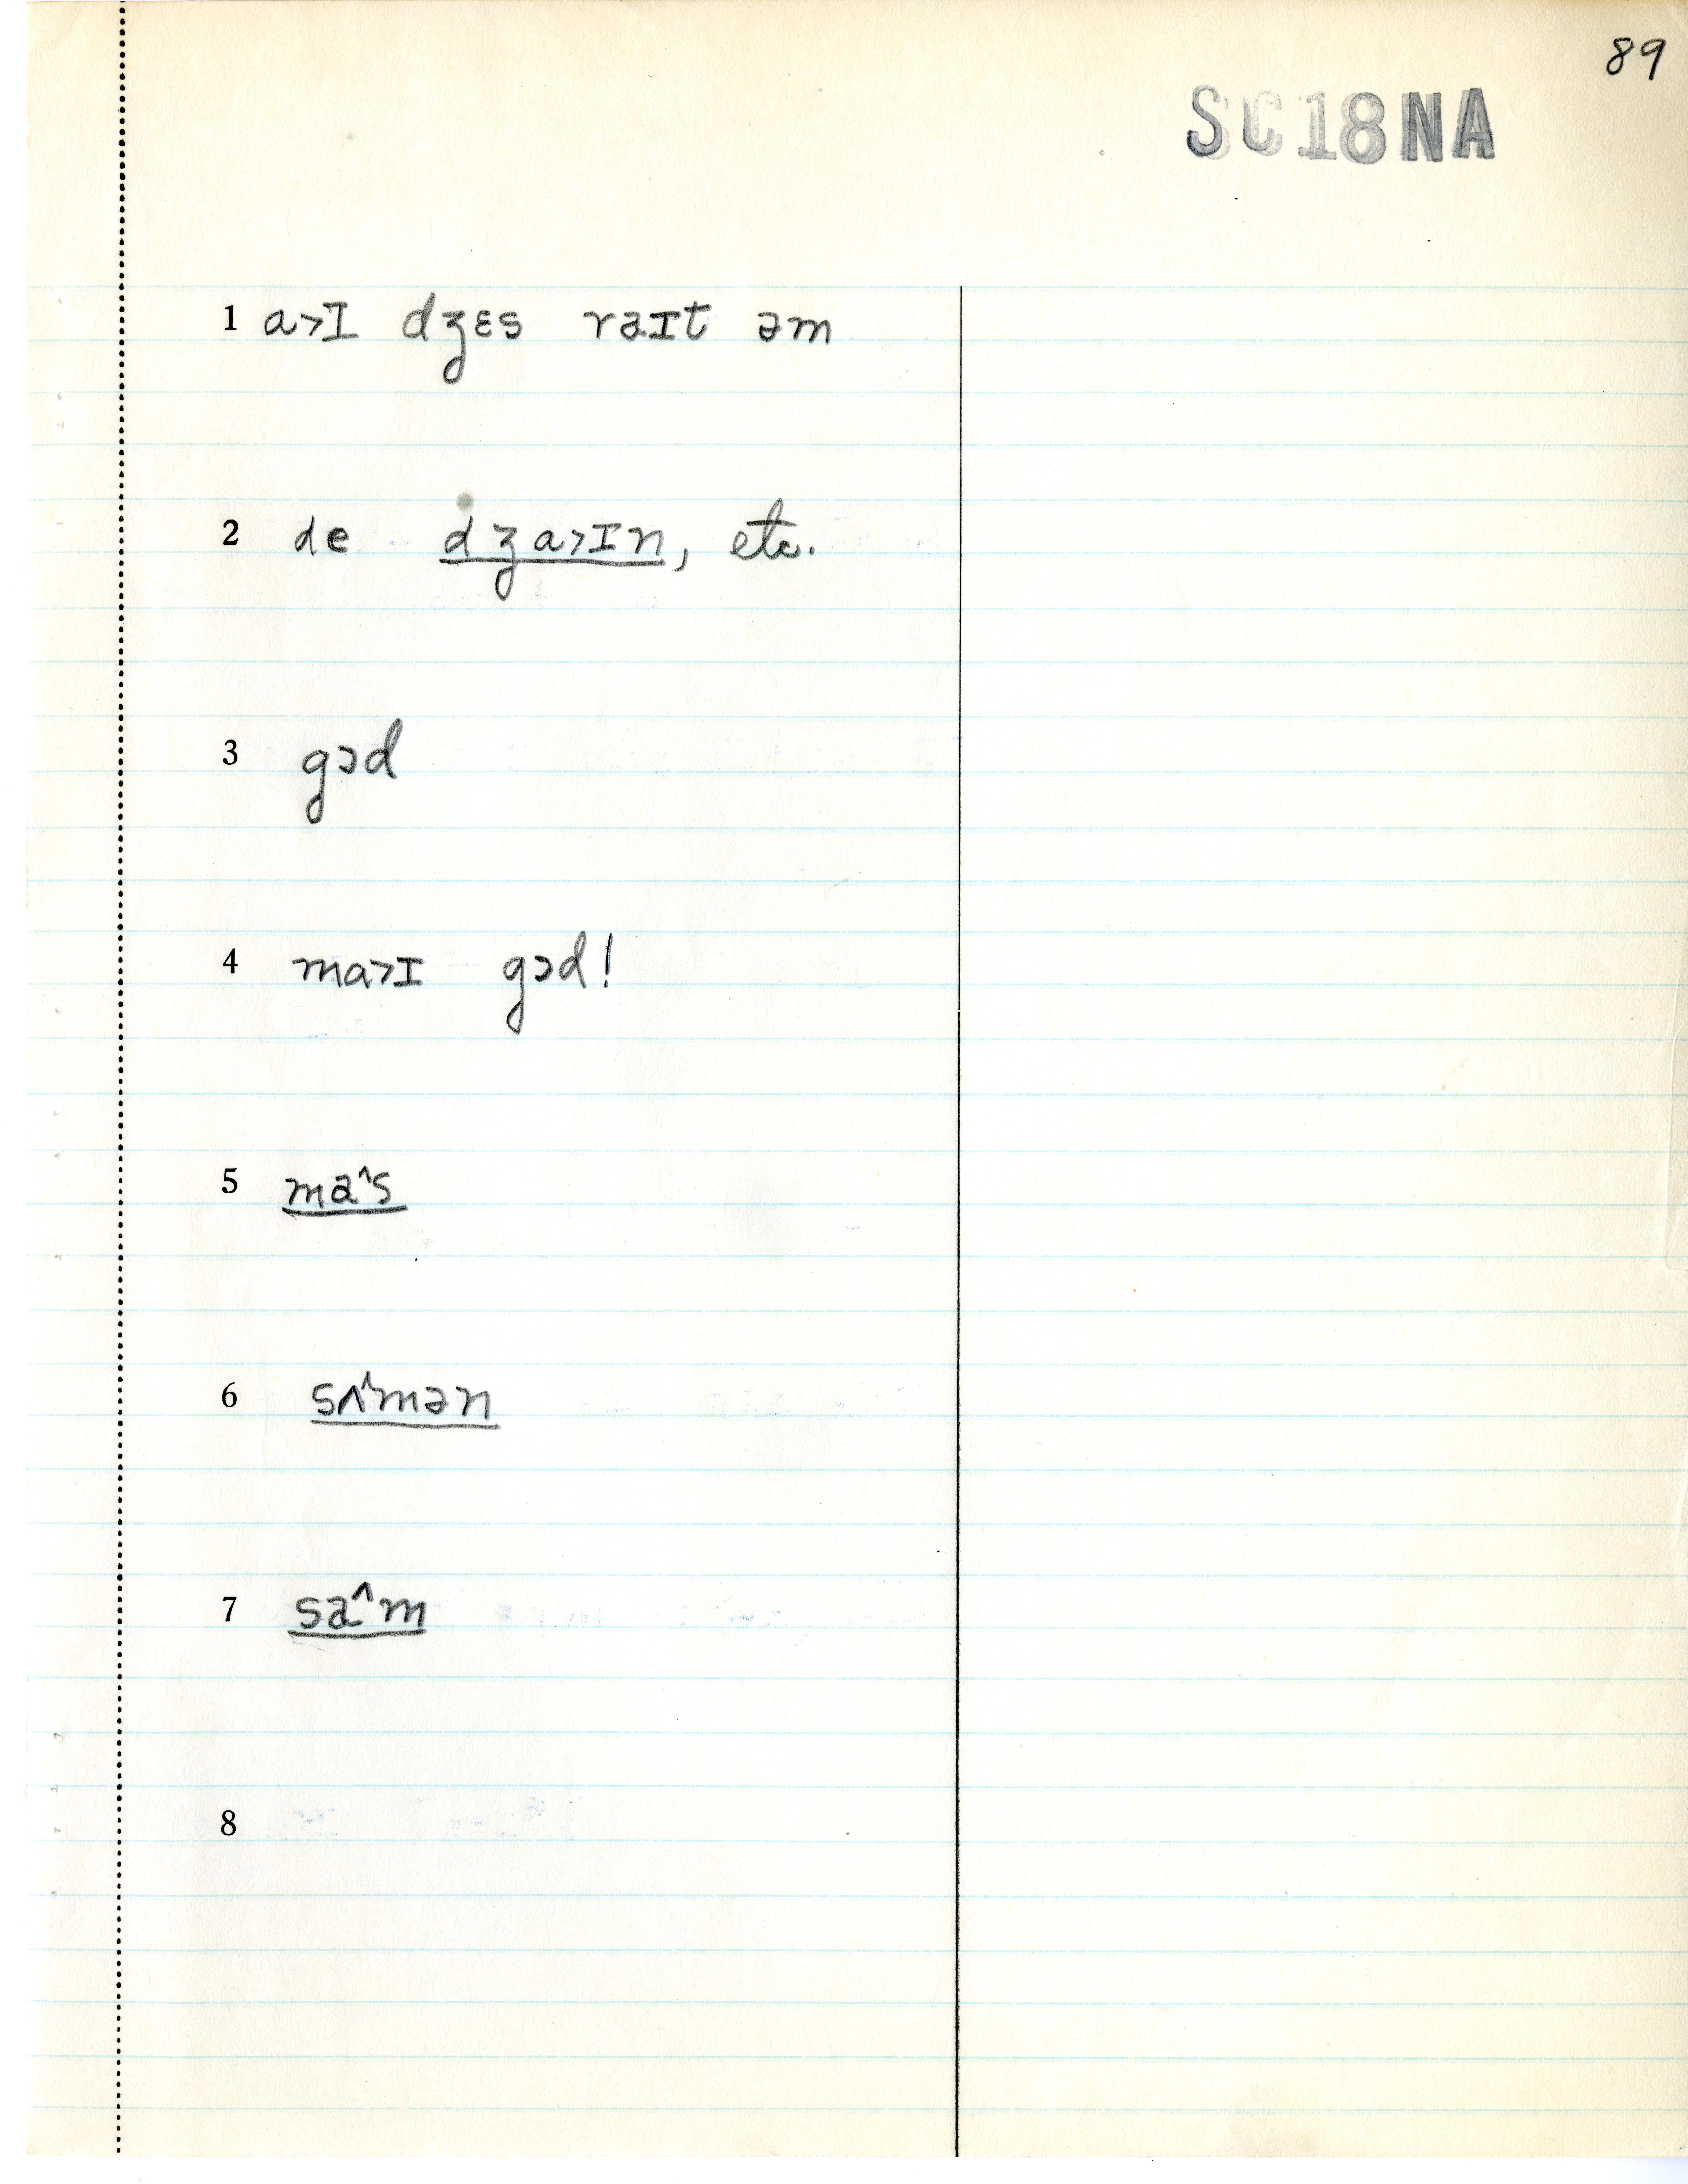 89
SC18NA
1 a>ɪ dʒɛs raɪt əm
2 de dʒa>ɪn, etc.
3 gɔd
4 ma>ɪ gɔd!
5 ma^s
6 sʌ^mən
7 sa^m
8